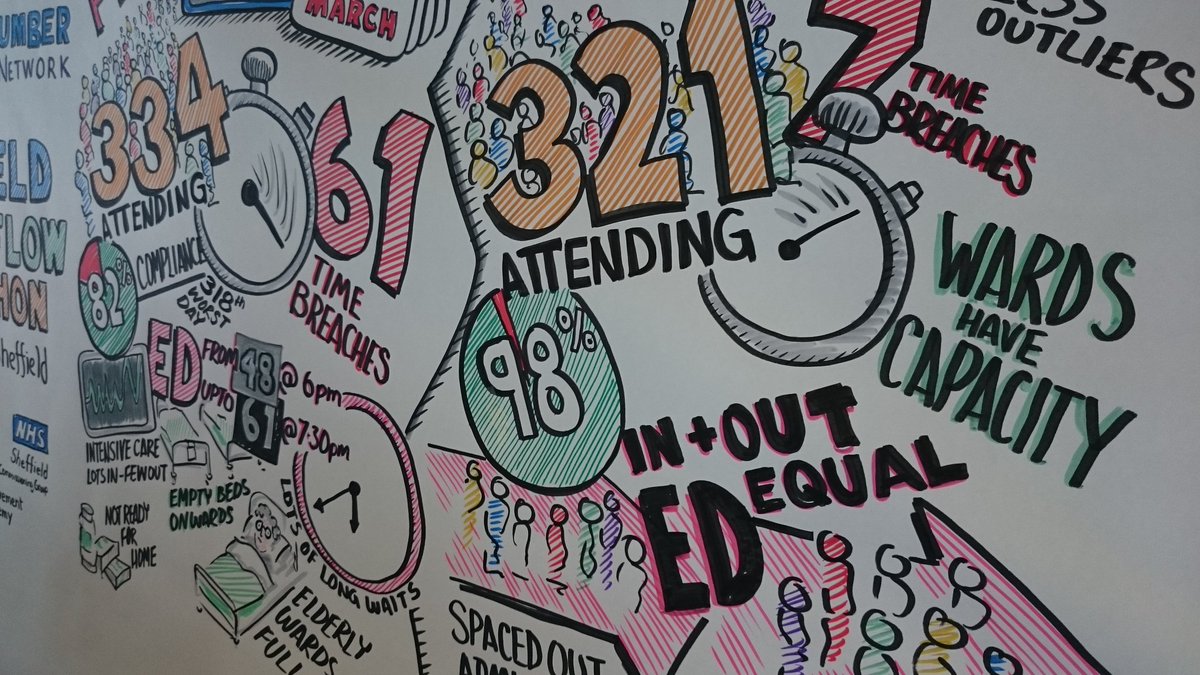 UMBER
NETWORK
ELD
FLOW
HON
Sheffield
NHS
Sheffield
MARCH
334
ATTENDING
82%
COMPLIANCE
318th
WORST
DAY
61
TIME
BREACHES
ED FROM 48 @ 6pm
UPTO 61 @ 7:30pm
INTENSIVE CARE
LOTS IN-FEW OUT
EMPTY BEDS
ON WARDS
NOT READY
FOR
HOME
LOTS OF LONG WAITS
ELDERLY
WARDS
FULL
321
ATTENDING
98%
7
TIME
BREACHES
LESS
OUTLIERS
WARDS
HAVE
CAPACITY
IN + OUT
EQUAL
ED
SPACED OUT